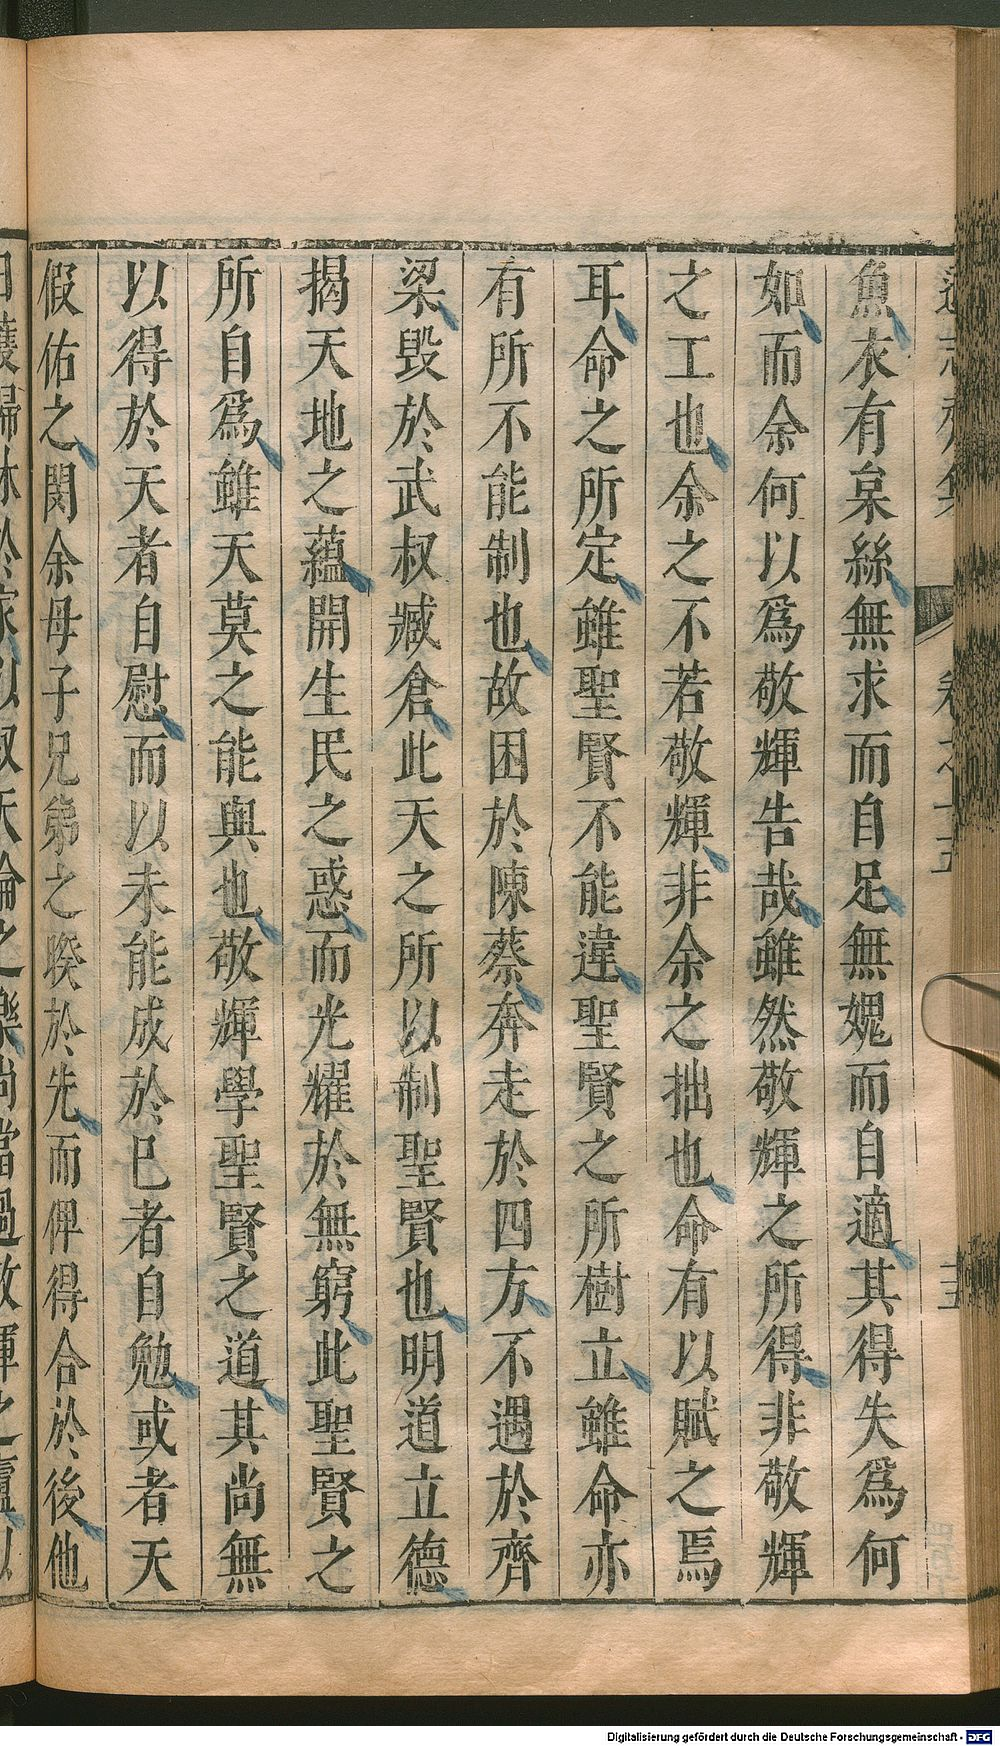 魚衣有枲絲無求而自足無媿而自適其得失爲何
如而余何以爲敬輝告哉雖然敬輝之所得非敬輝
之工也余之不若敬輝非余之拙也命有以賦之焉
耳命之所定雖聖賢不能違聖賢之所樹立雖命亦
有所不能制也故困於陳蔡奔走於四方不遇於齊
梁毀於武叔臧倉此天之所以制聖賢也明道立德
揭天地之蘊開生民之惑而光耀於無窮此聖賢之
所自爲雖天莫之能與也敬輝學聖賢之道其尚無
以得於天者自慰而以未能成於已者自勉或者天
假佑之閔余母子兄弟之暌於先而俾得合於後他
Digitalisierung gefördert durch die Deutsche Forschungsgemeinschaft - DFG